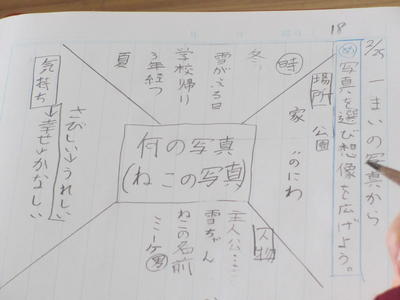 2/25
18
一まいの写真から
め
写真を選び想像を広げよう。
場所
公園
家のにわ
時
冬
雪がふる日
学校帰り
3年経つ
夏
何の写真
(ねこの写真)
人物
主人公……
雪ちゃん
ねこの名前
ミーケ 男
気持ち
さびしい→うれしい
→幸せ→かなしい